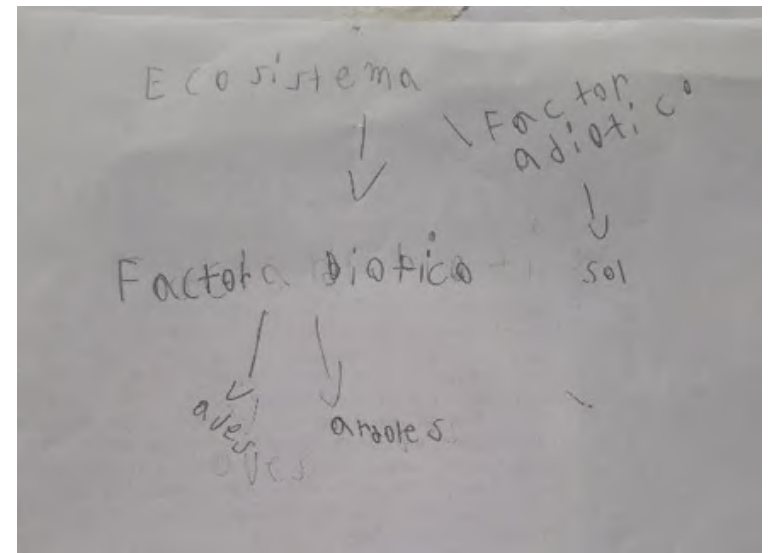 Ecosistema
Factor
adiotico
Factor diotico
sol
aves
aves
ardoles